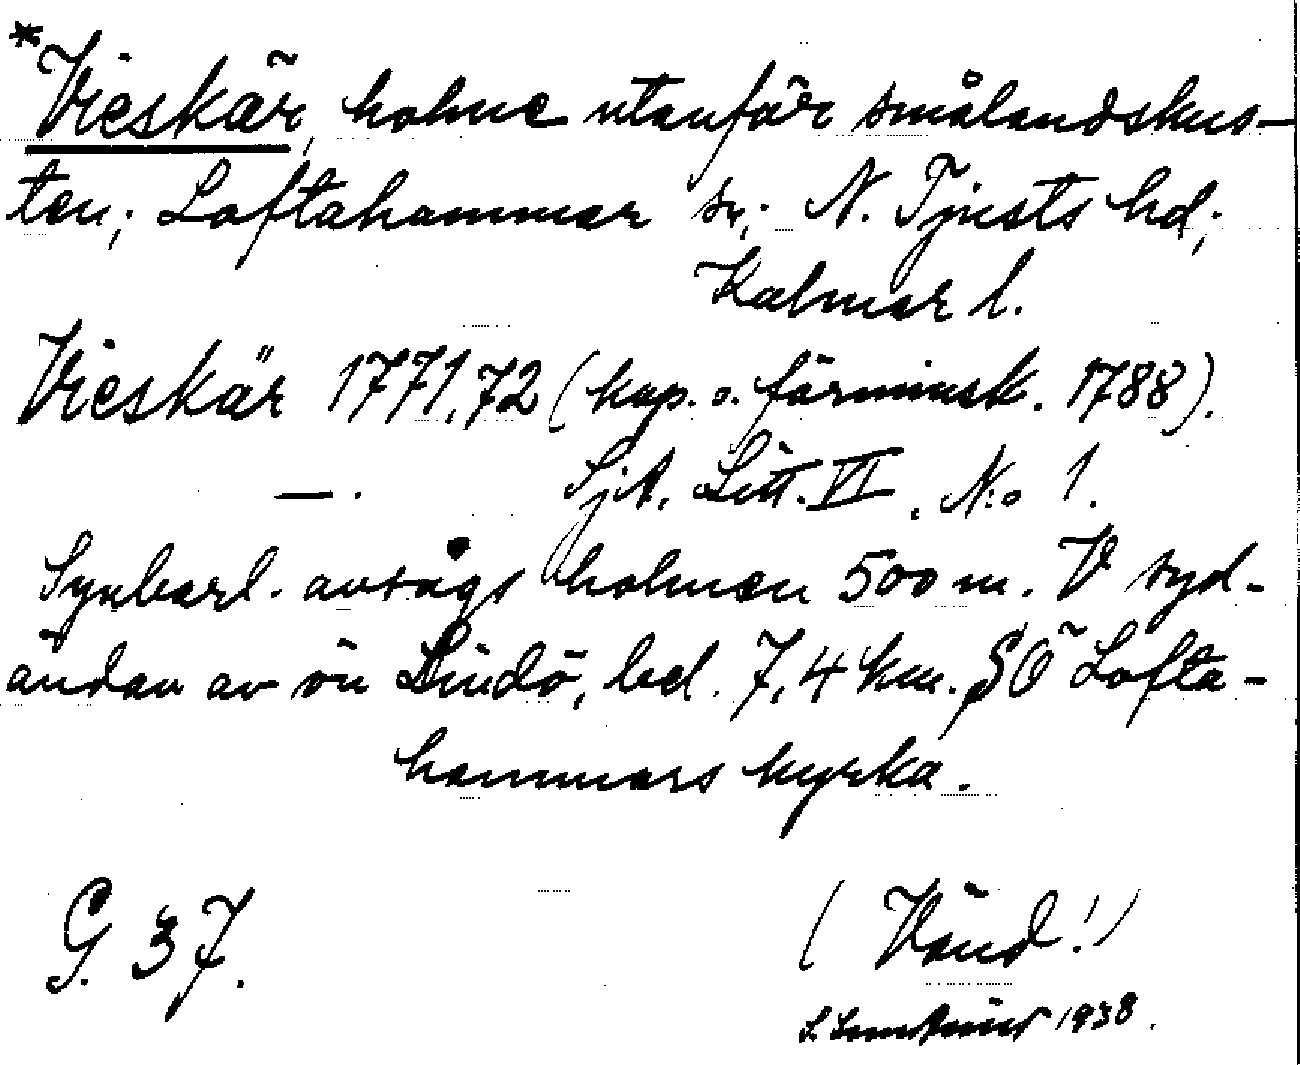 *Vieskär, holme utanför smålandskus-
ten; Loftahammar sn; N. Tjusts hd;
Kalmar l.
Vieskär 1771,72 (kop. o. förminsk. 1788).
—. SjA. Litt. VI, N:o 1.
Synbarl. avsågs holmen 500 m. V syd-
ändan av ön Lindö, bel. 7,4 km. SÖ Lofta-
hammars kyrka.
G. 37.
(Vänd!)
1938.